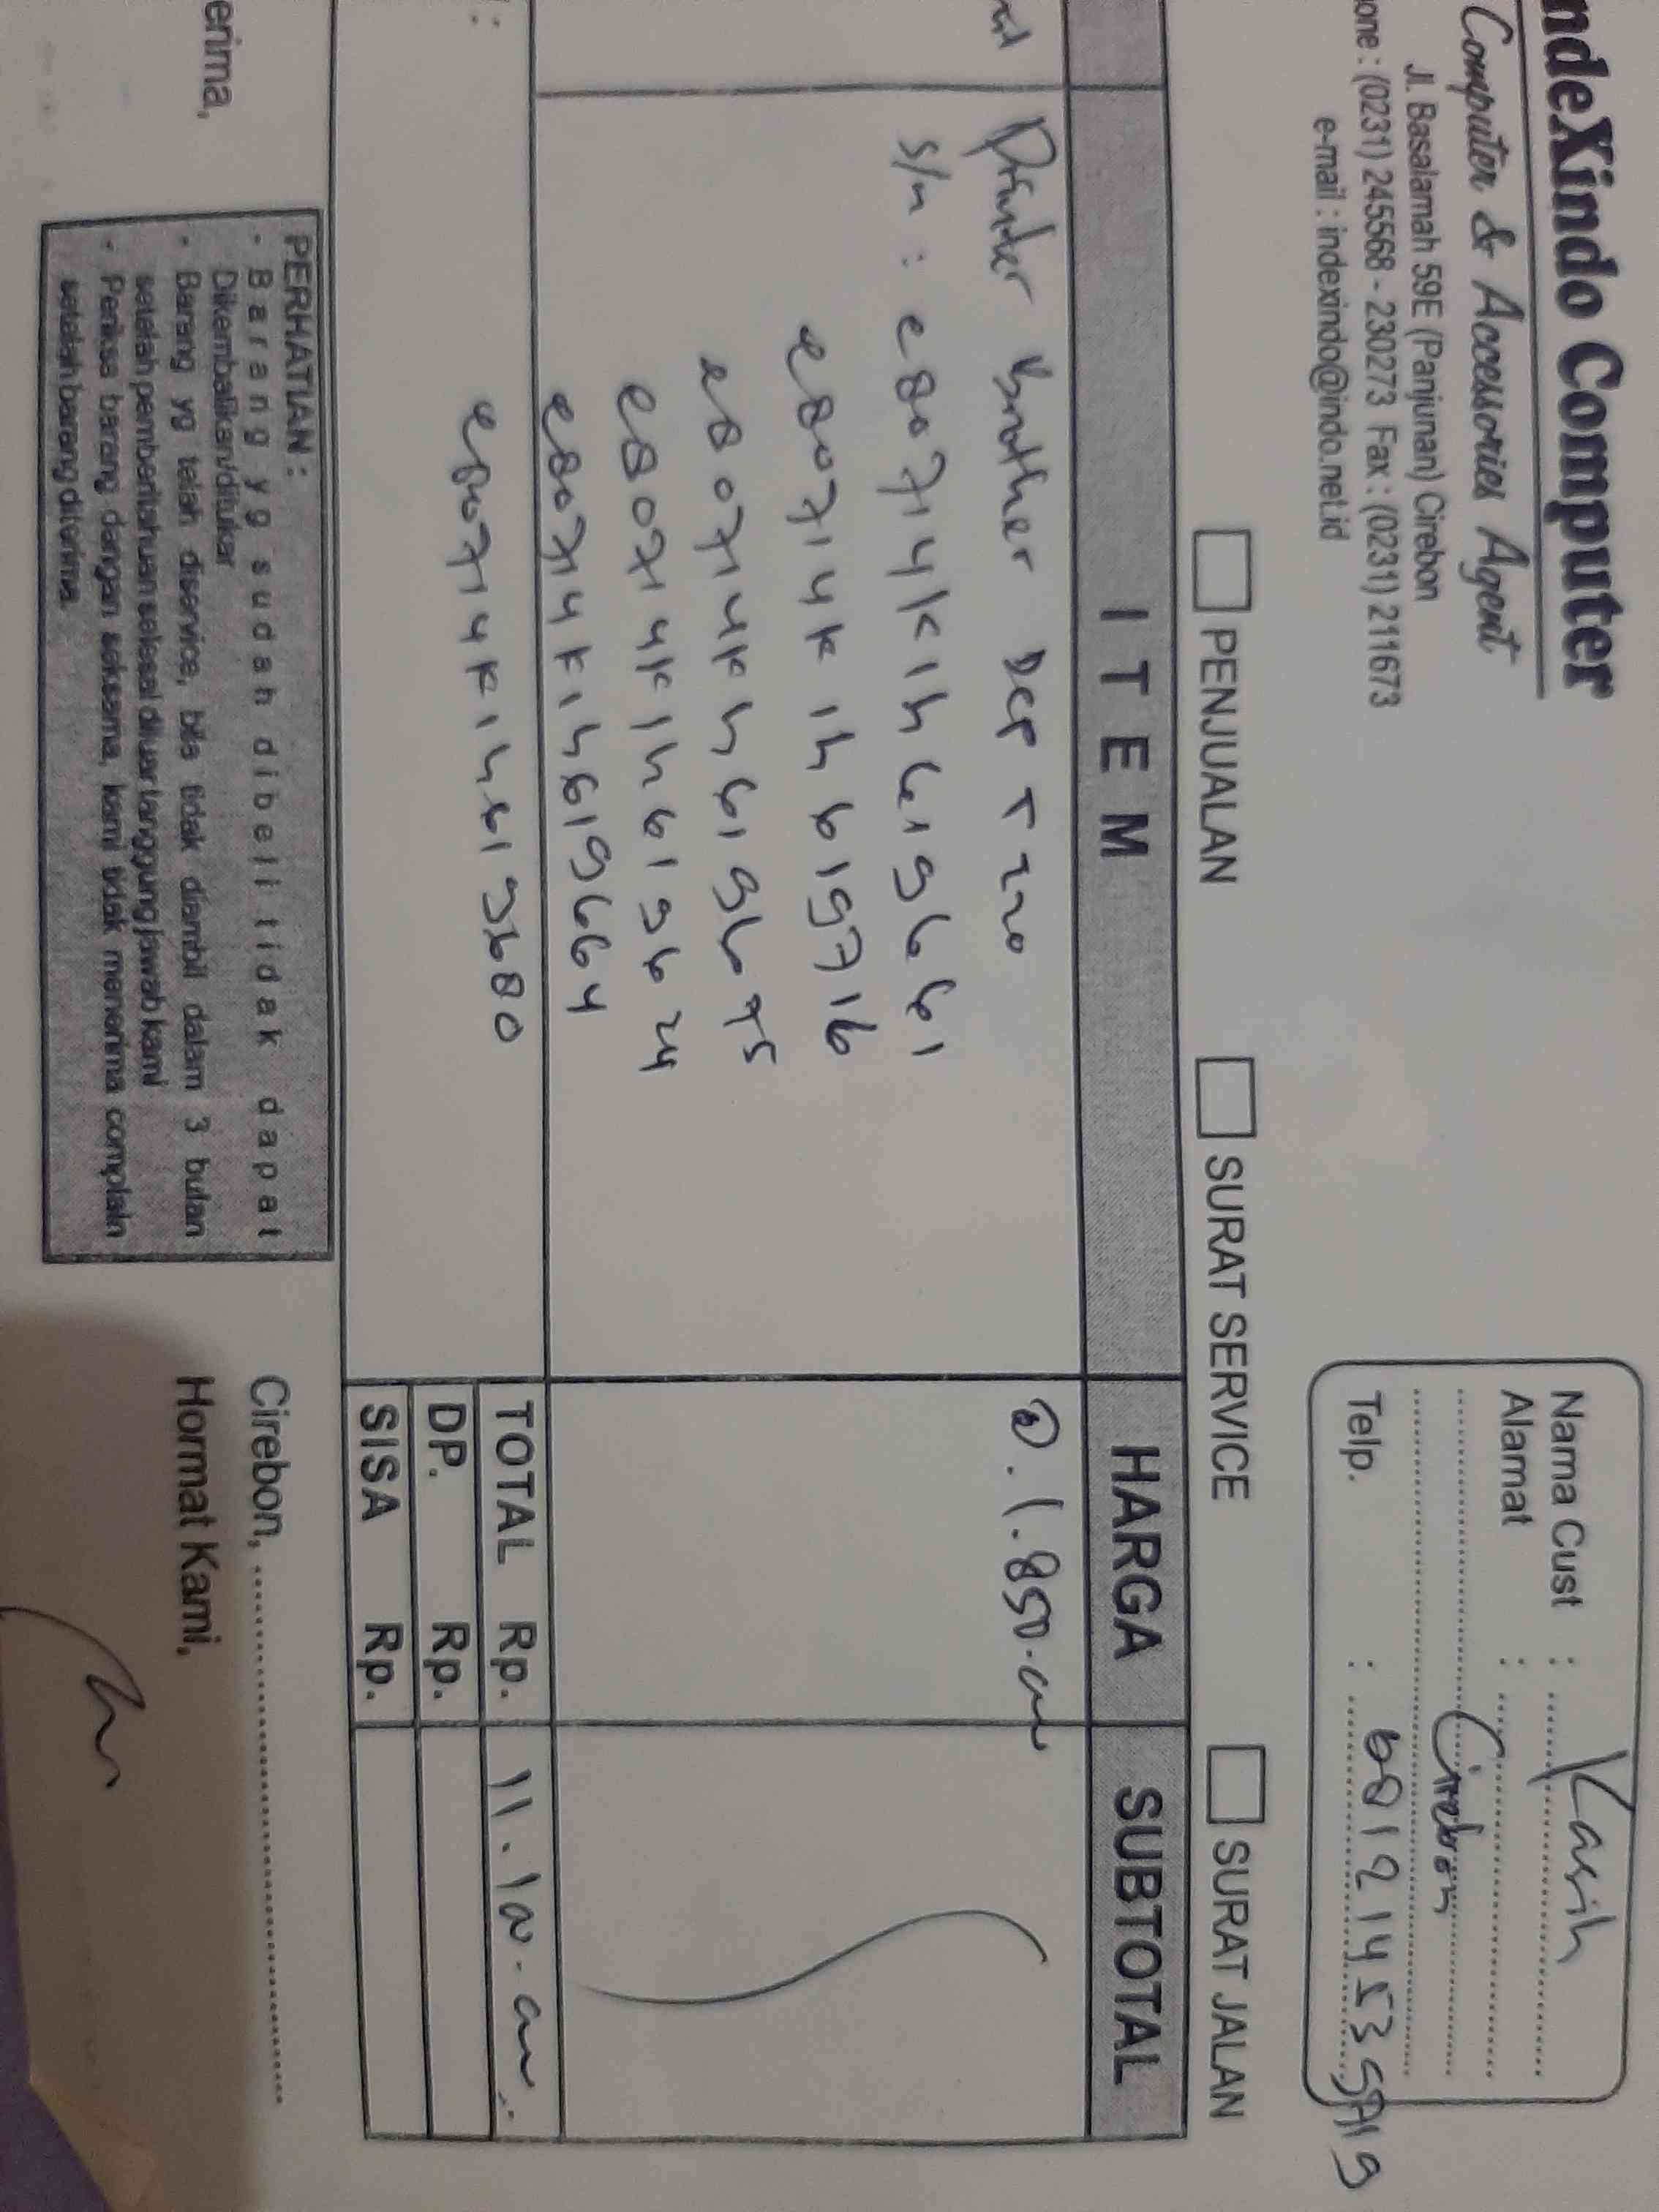 ndeXindo Computer
Computer & Accessories Agent
Jl. Basalamah 59E (Panjunan) Cirebon
one : (0231) 245568 - 230273 Fax : (0231) 211673
e-mail : indexindo@indo.net.id
Nama Cust : Kasih
Alamat :
Cirebon
Telp. :
PENJUALAN SURAT SERVICE SURAT JALAN
ITEM HARGA SUBTOTAL
Printer Brother DCP T220 @. 1.850.
s/n : E80714K1H619661
E80714K1H619716
E80714K1H619675
E80714K1H619624
E80714K1H619664
E80714K1H619680
TOTAL Rp. 11.100.
DP. Rp.
SISA Rp.
erima,
PERHATIAN :
- Barang yg sudah dibeli tidak dapat
Dikembalikan/ditukar
- Barang yg telah diservice, bila tidak diambil dalam 3 bulan
setelah pemberitahuan selesai diluar tanggung jawab kami
- Periksa barang dengan seksama, kami tidak menerima complain
setelah barang diterima.
Cirebon,
Hormat Kami,